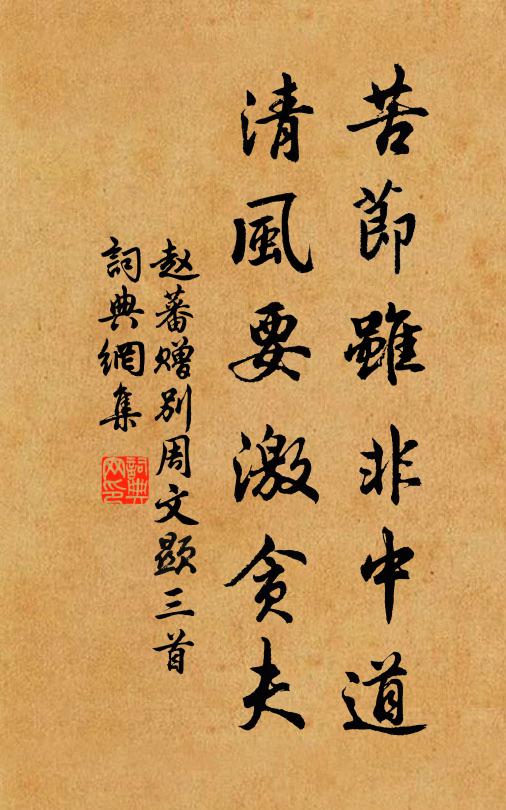 苦節雖非中道
清風要激貪夫
赵蕃赠别周文顯三首
詞典網集
詞典網印